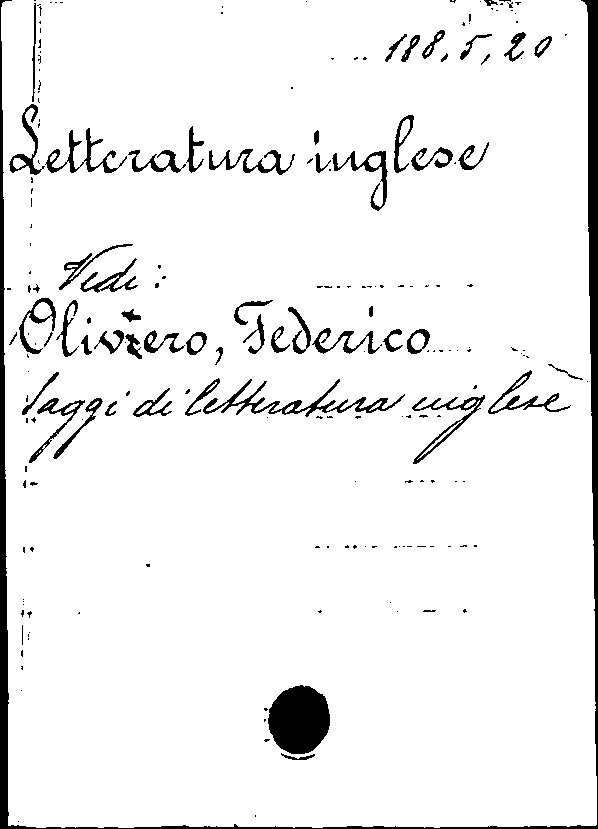 188.5.20
Letteratura inglese
Vedi:
Oliviero, Federico
Saggi di letteratura inglese